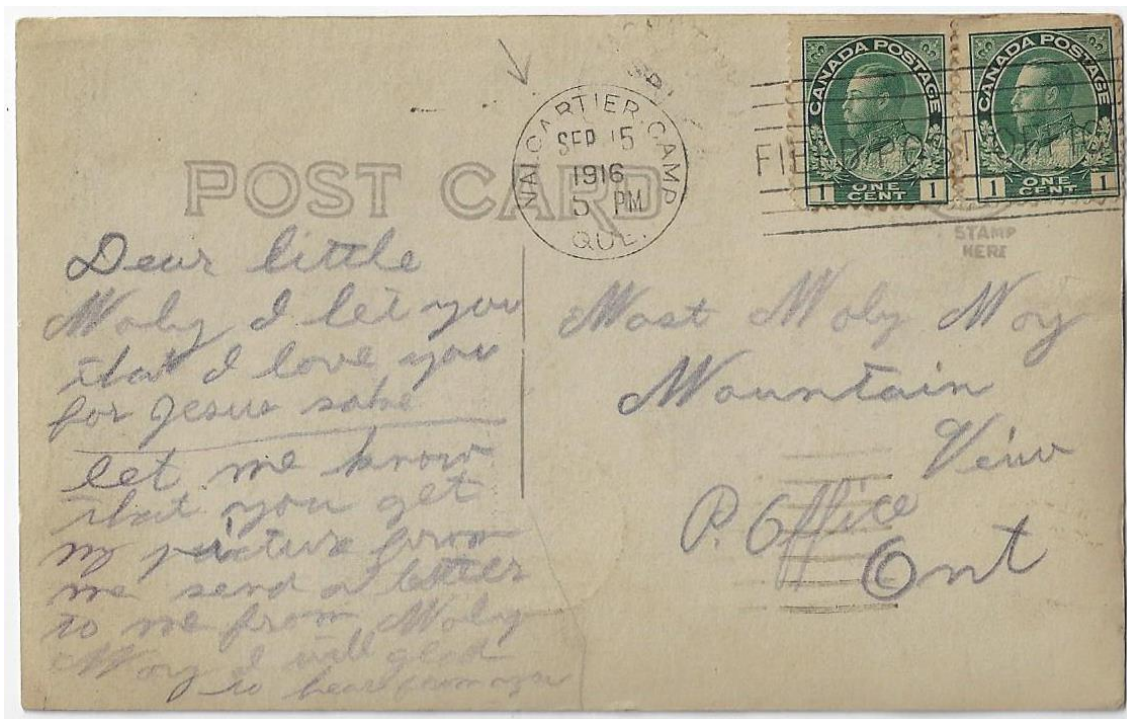 POST CARD
VALCARTIER CAMP
SEP 15
1916
5 PM
QUE.
FIELD POST OFFICE
CANADA POSTAGE
1 ONE CENT 1
CANADA POSTAGE
1 ONE CENT 1
STAMP
HERE
Dear little
Moby I let you
that I love you
for Jesus sake
let me know
that you get
my picture from
me send a letter
to me from Moby
Moy I will glad
to hear from you
Mast Moby Moy
Mountain
Veiw
P. Office
Ont